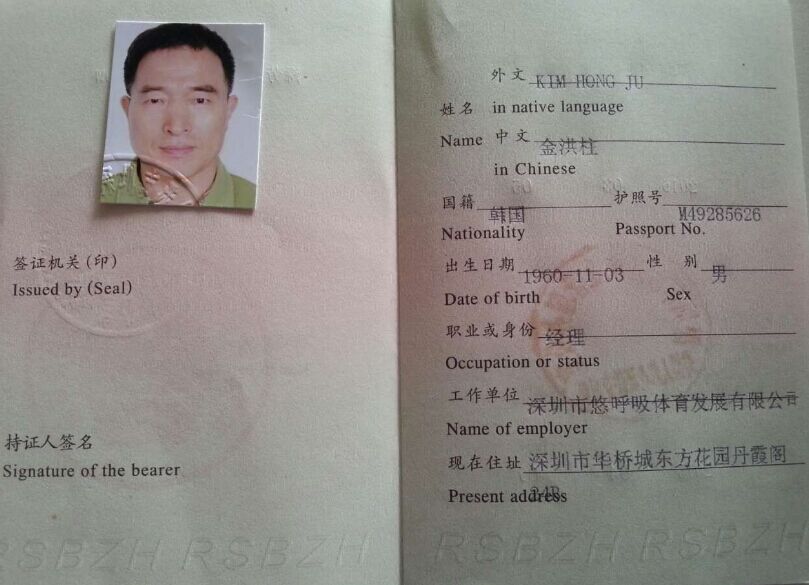 签证机关(印)
Issued by (Seal)
持证人签名
Signature of the bearer
RSBZH RSBZH
外文 KIM HONG JU
姓名 in native language
Name 中文 金洪柱
in Chinese
国籍 韩国 护照号 M49285626
Nationality Passport No.
出生日期 1960-11-03 性 别 男
Date of birth Sex
职业或身份 经理
Occupation or status
工作单位 深圳市悠呼吸体育发展有限公司
Name of employer
现在住址 深圳市华桥城东方花园丹霞阁
Present address 24B
RSBZH RSBZH